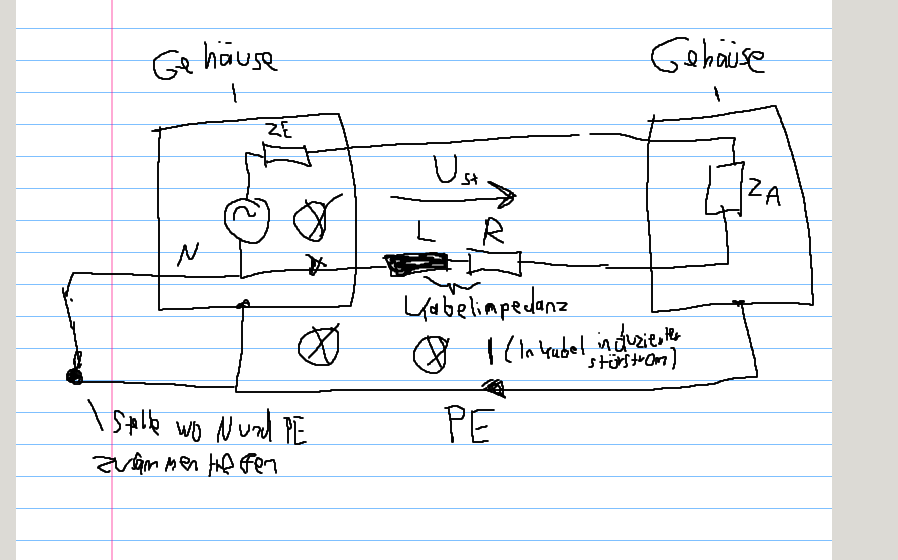 Gehäuse
Gehäuse
ZE
U st
ZA
L R
N
Kabelimpedanz
I (In Kabel induzierter
störstrom)
PE
Stelle wo N und PE
zusammen treffen